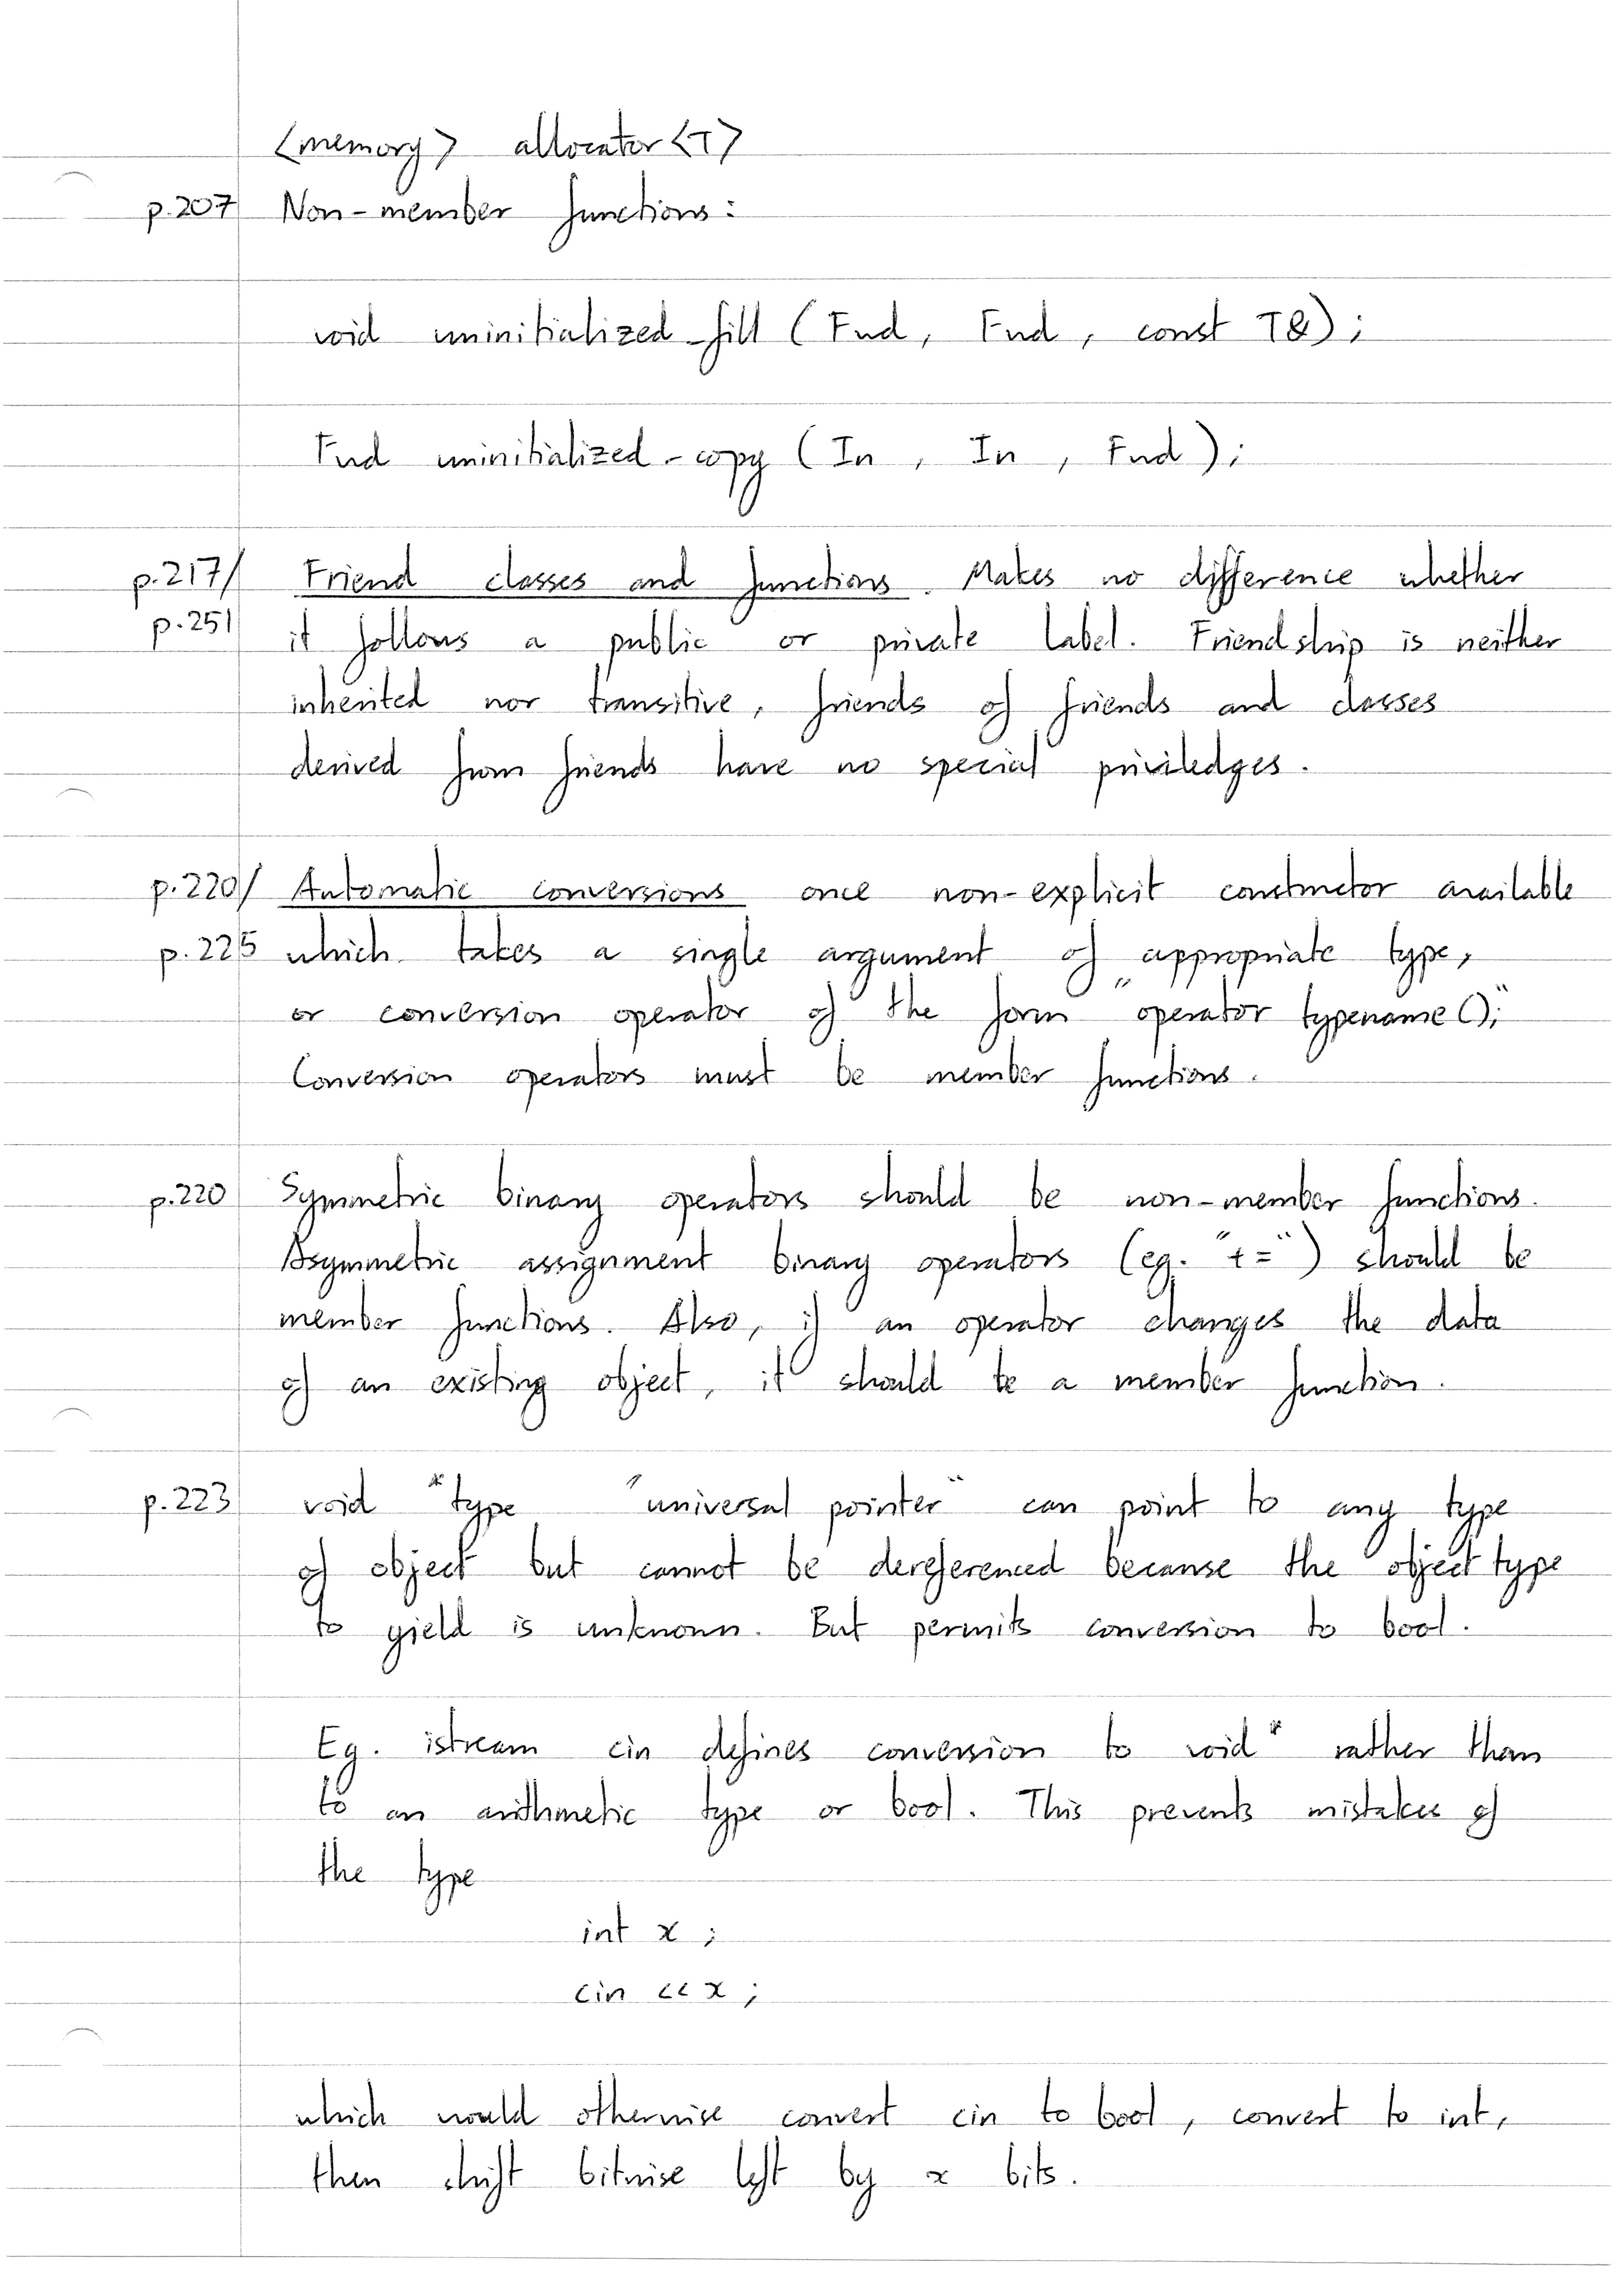 <memory> allocator<T>
p.207 Non-member functions:
void uninitialized_fill (Fwd, Fwd, const T&);
Fwd uninitialized_copy (In, In, Fwd);
p.217/ Friend classes and functions. Makes no difference whether
p.251 it follows a public or private label. Friendship is neither
inherited nor transitive, friends of friends and classes
derived from friends have no special priviledges.
p.220/ Automatic conversions once non-explicit constructor available
p.225 which takes a single argument of appropriate type,
or conversion operator of the form "operator typename();"
Conversion operators must be member functions.
p.220 Symmetric binary operators should be non-member functions.
Asymmetric assignment binary operators (eg. "+=") should be
member functions. Also, if an operator changes the data
of an existing object, it should be a member function.
p.223 void* type "universal pointer" can point to any type
of object but cannot be dereferenced because the object type
to yield is unknown. But permits conversion to bool.
Eg. istream cin defines conversion to void* rather than
to an arithmetic type or bool. This prevents mistakes of
the type
int x;
cin << x;
which would otherwise convert cin to bool, convert to int,
then shift bitwise left by x bits.